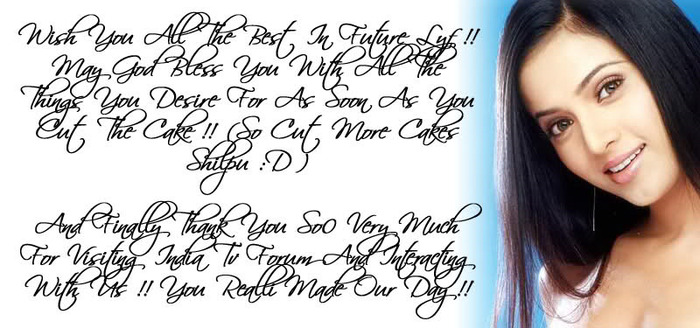 Wish You All The Best In Future Lyf !!
May God Bless You With All The
Things You Desire For As Soon As You
Cut The Cake !! (So Cut More Cakes
Shilpu :D )
And Finally Thank You So0 Very Much
For Visiting India Tv Forum And Interacting
With Us !! You Realli Made Our Day !!